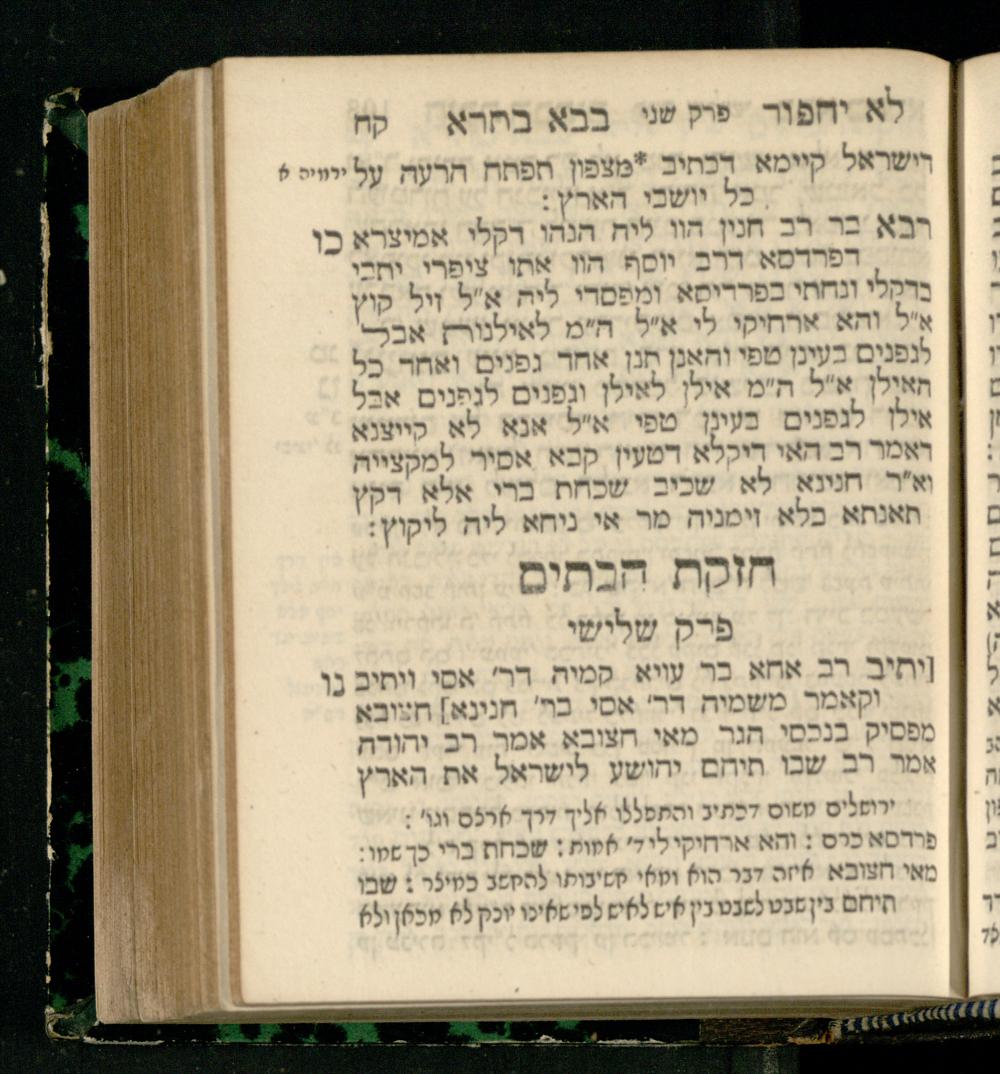 לא יחפור פרק שני בבא בתרא קח
דישראל קיימא דכתיב *מצפון תפתח הרעה על ירמיה א
כל יושבי הארץ :
רבא בר רב חנין הוו ליה הנהו דקלי אמיצרא כו
דפרדסא דרב יוסף הוו אתו ציפרי יתבי
בדקלי ונחתי בפרדיסא ומפסדי ליה א״ל זיל קוץ
א״ל והא ארחיקי לי א״ל ה״מ לאילנורת אבל
לגפנים בעינן טפי והאנן תנן אחד גפנים ואחד כל
האילן א״ל ה״מ אילן לאילן וגפנים לגפנים אבל
אילן לגפנים בעינן טפי א״ל אנא לא קייצנא
דאמר רב האי דיקלא דטעין קבא אסיר למקצייה
וא״ר חנינא לא שכיב שכחת ברי אלא דקץ
תאנתא בלא זימניה מר אי ניחא ליה ליקוץ :
חזקת הבתים
פרק שלישי
[יתיב רב אחא בר עויא קמיה דר׳ אסי ויתיב נו
וקאמר משמיה דר׳ אסי בר׳ חנינא] חצובא
מפסיק בנכסי הגר מאי חצובא אמר רב יהודה
אמר רב שבו תיחם יהושע לישראל את הארץ
ירושלים משום דכתיב והתפללו אליך דרך ארלס וגו׳ :
פרדסא כרם : והא ארחיקי לי ד׳ אמות : שכחת ברי כך שמו :
מאי חצובא איזה דבר הוא ומאי חשיבותו להחשב כמילר : שבו
תיחם בין שבט לשבט בין איש לאיש לפי שאיכו יוכק לא מכאן ולא